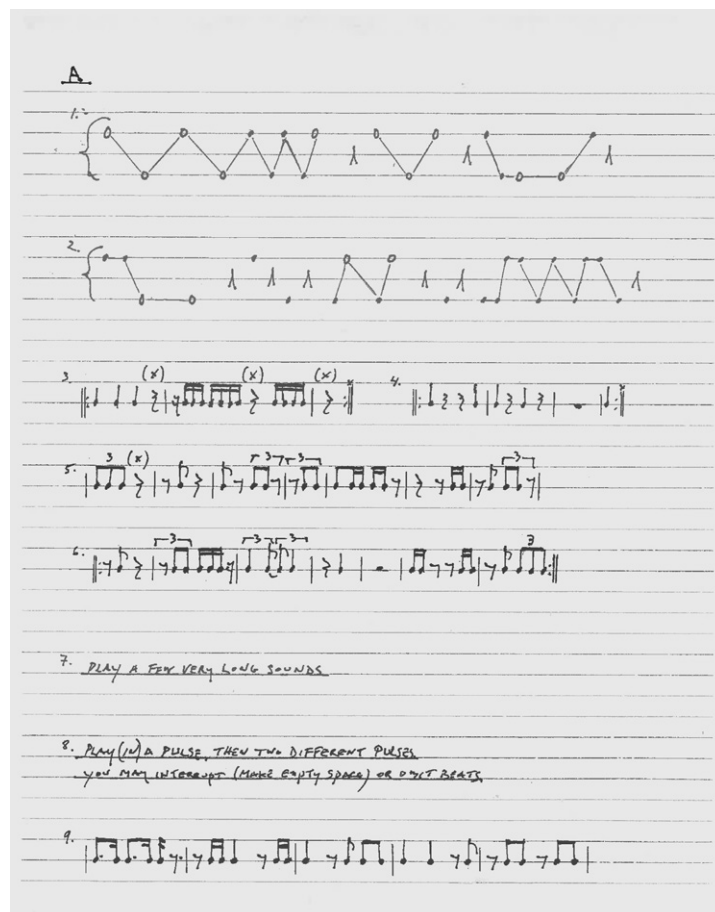 A
1.
2.
3. (x) (x) (x) x 4. x
5. 3 (x) 3 3 3
6. 3 3 3 3
7. PLAY A FEW VERY LONG SOUNDS
8. PLAY (IN) A PULSE, THEN TWO DIFFERENT PULSES
YOU MAY INTERRUPT (MAKE EMPTY SPACE) OR OMIT BEATS
9.